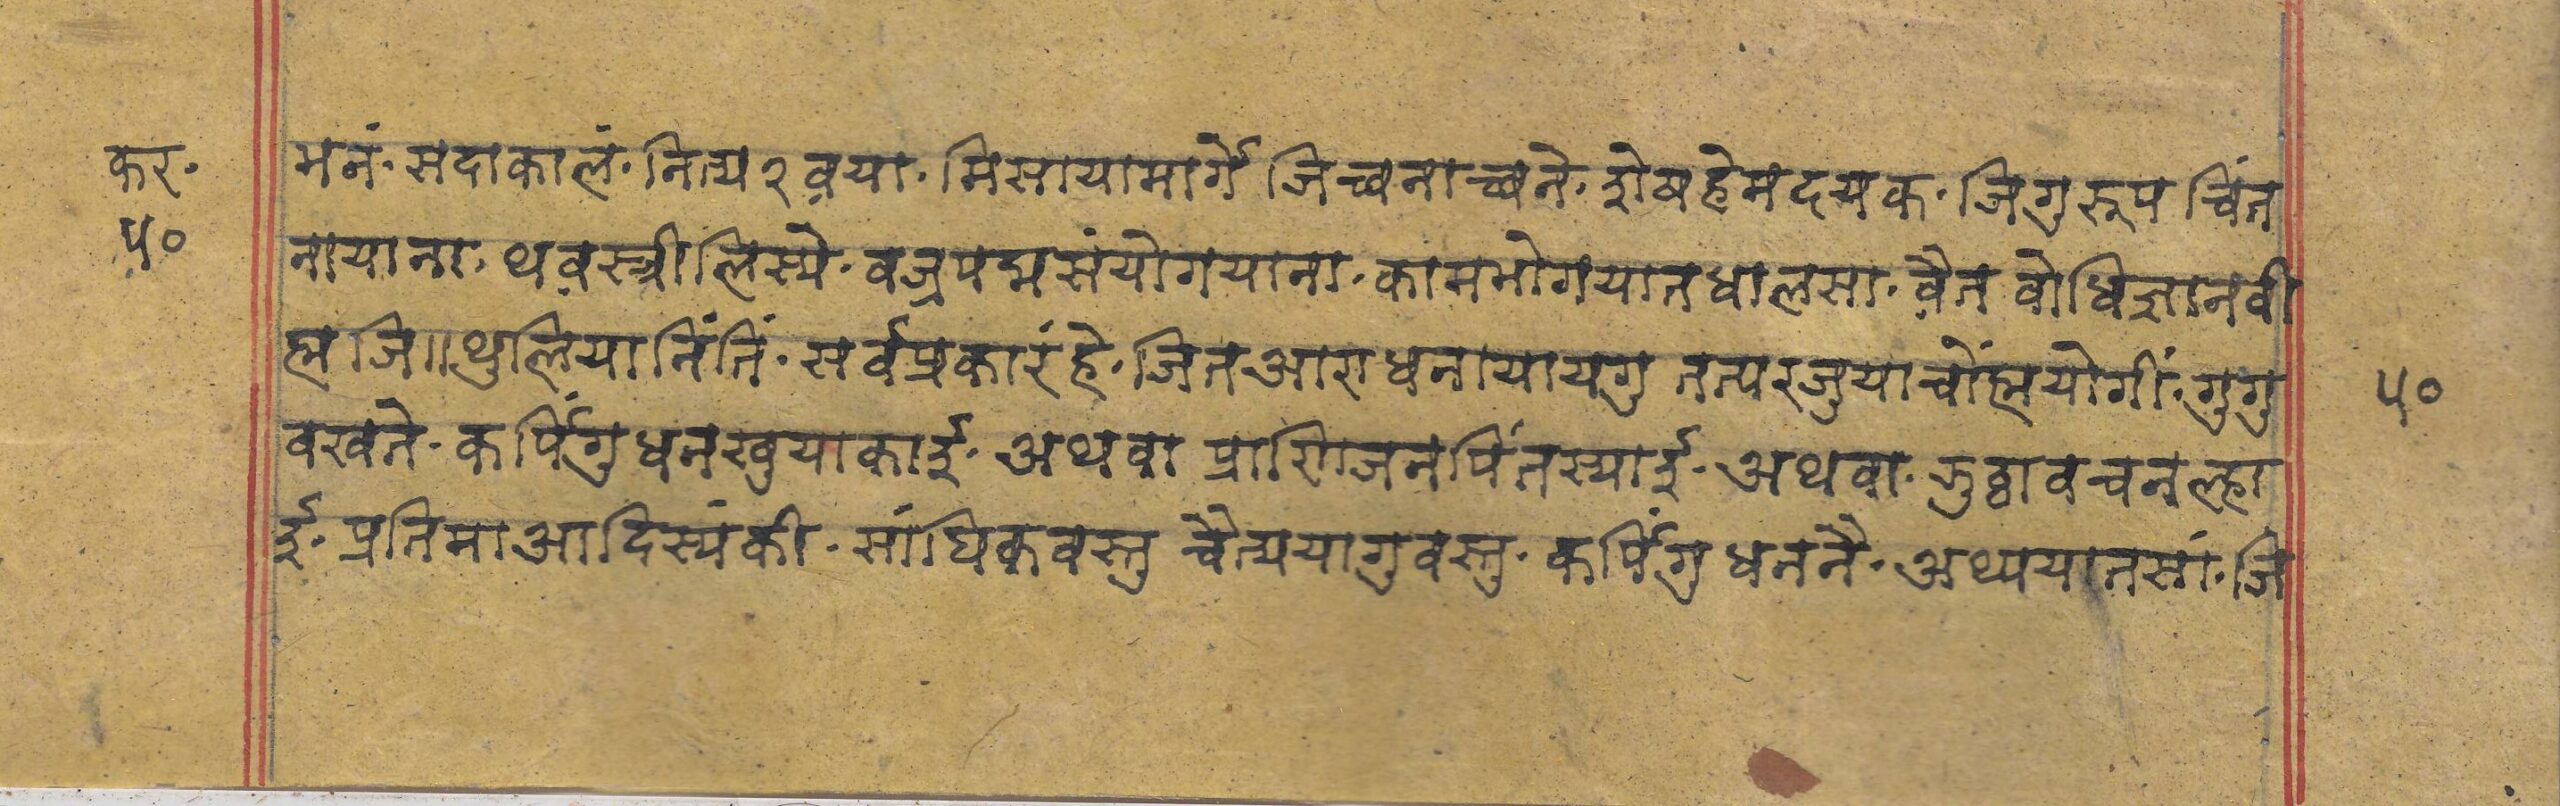 कर॰
५०
मनं॰ सदाकालं॰ नित्य२ व़या॰ मिसायामार्गे जिच्वनाच्वने॰ शेषहेमदयक॰ जिगुरूप चिंत
नायाना॰ थव़स्त्रीलिस्ये॰ वज्रपद्मसंयोगयाना॰ कामभोगयातधालसा॰ व़ैत बोधिज्ञानवी
ह्म जि॥ थुलियानिंतिं॰ सर्वप्रकारंहे॰ जितआराधनायायगु तत्परजुयाचोंह्मयोगीं॰ गुगु
वखते॰ कपिंगुधनखुयाकाई॰ अथवा प्राणिजनपिंतस्याई॰ अथवा॰ झुठ्ठावचनल्हा
ई॰ प्रतिमाआदिस्यंकी॰ सांघिकवस्तु चैत्ययागुवस्तु॰ कपिंगुधननै॰ अथ्ययातसां॰ जि
५०